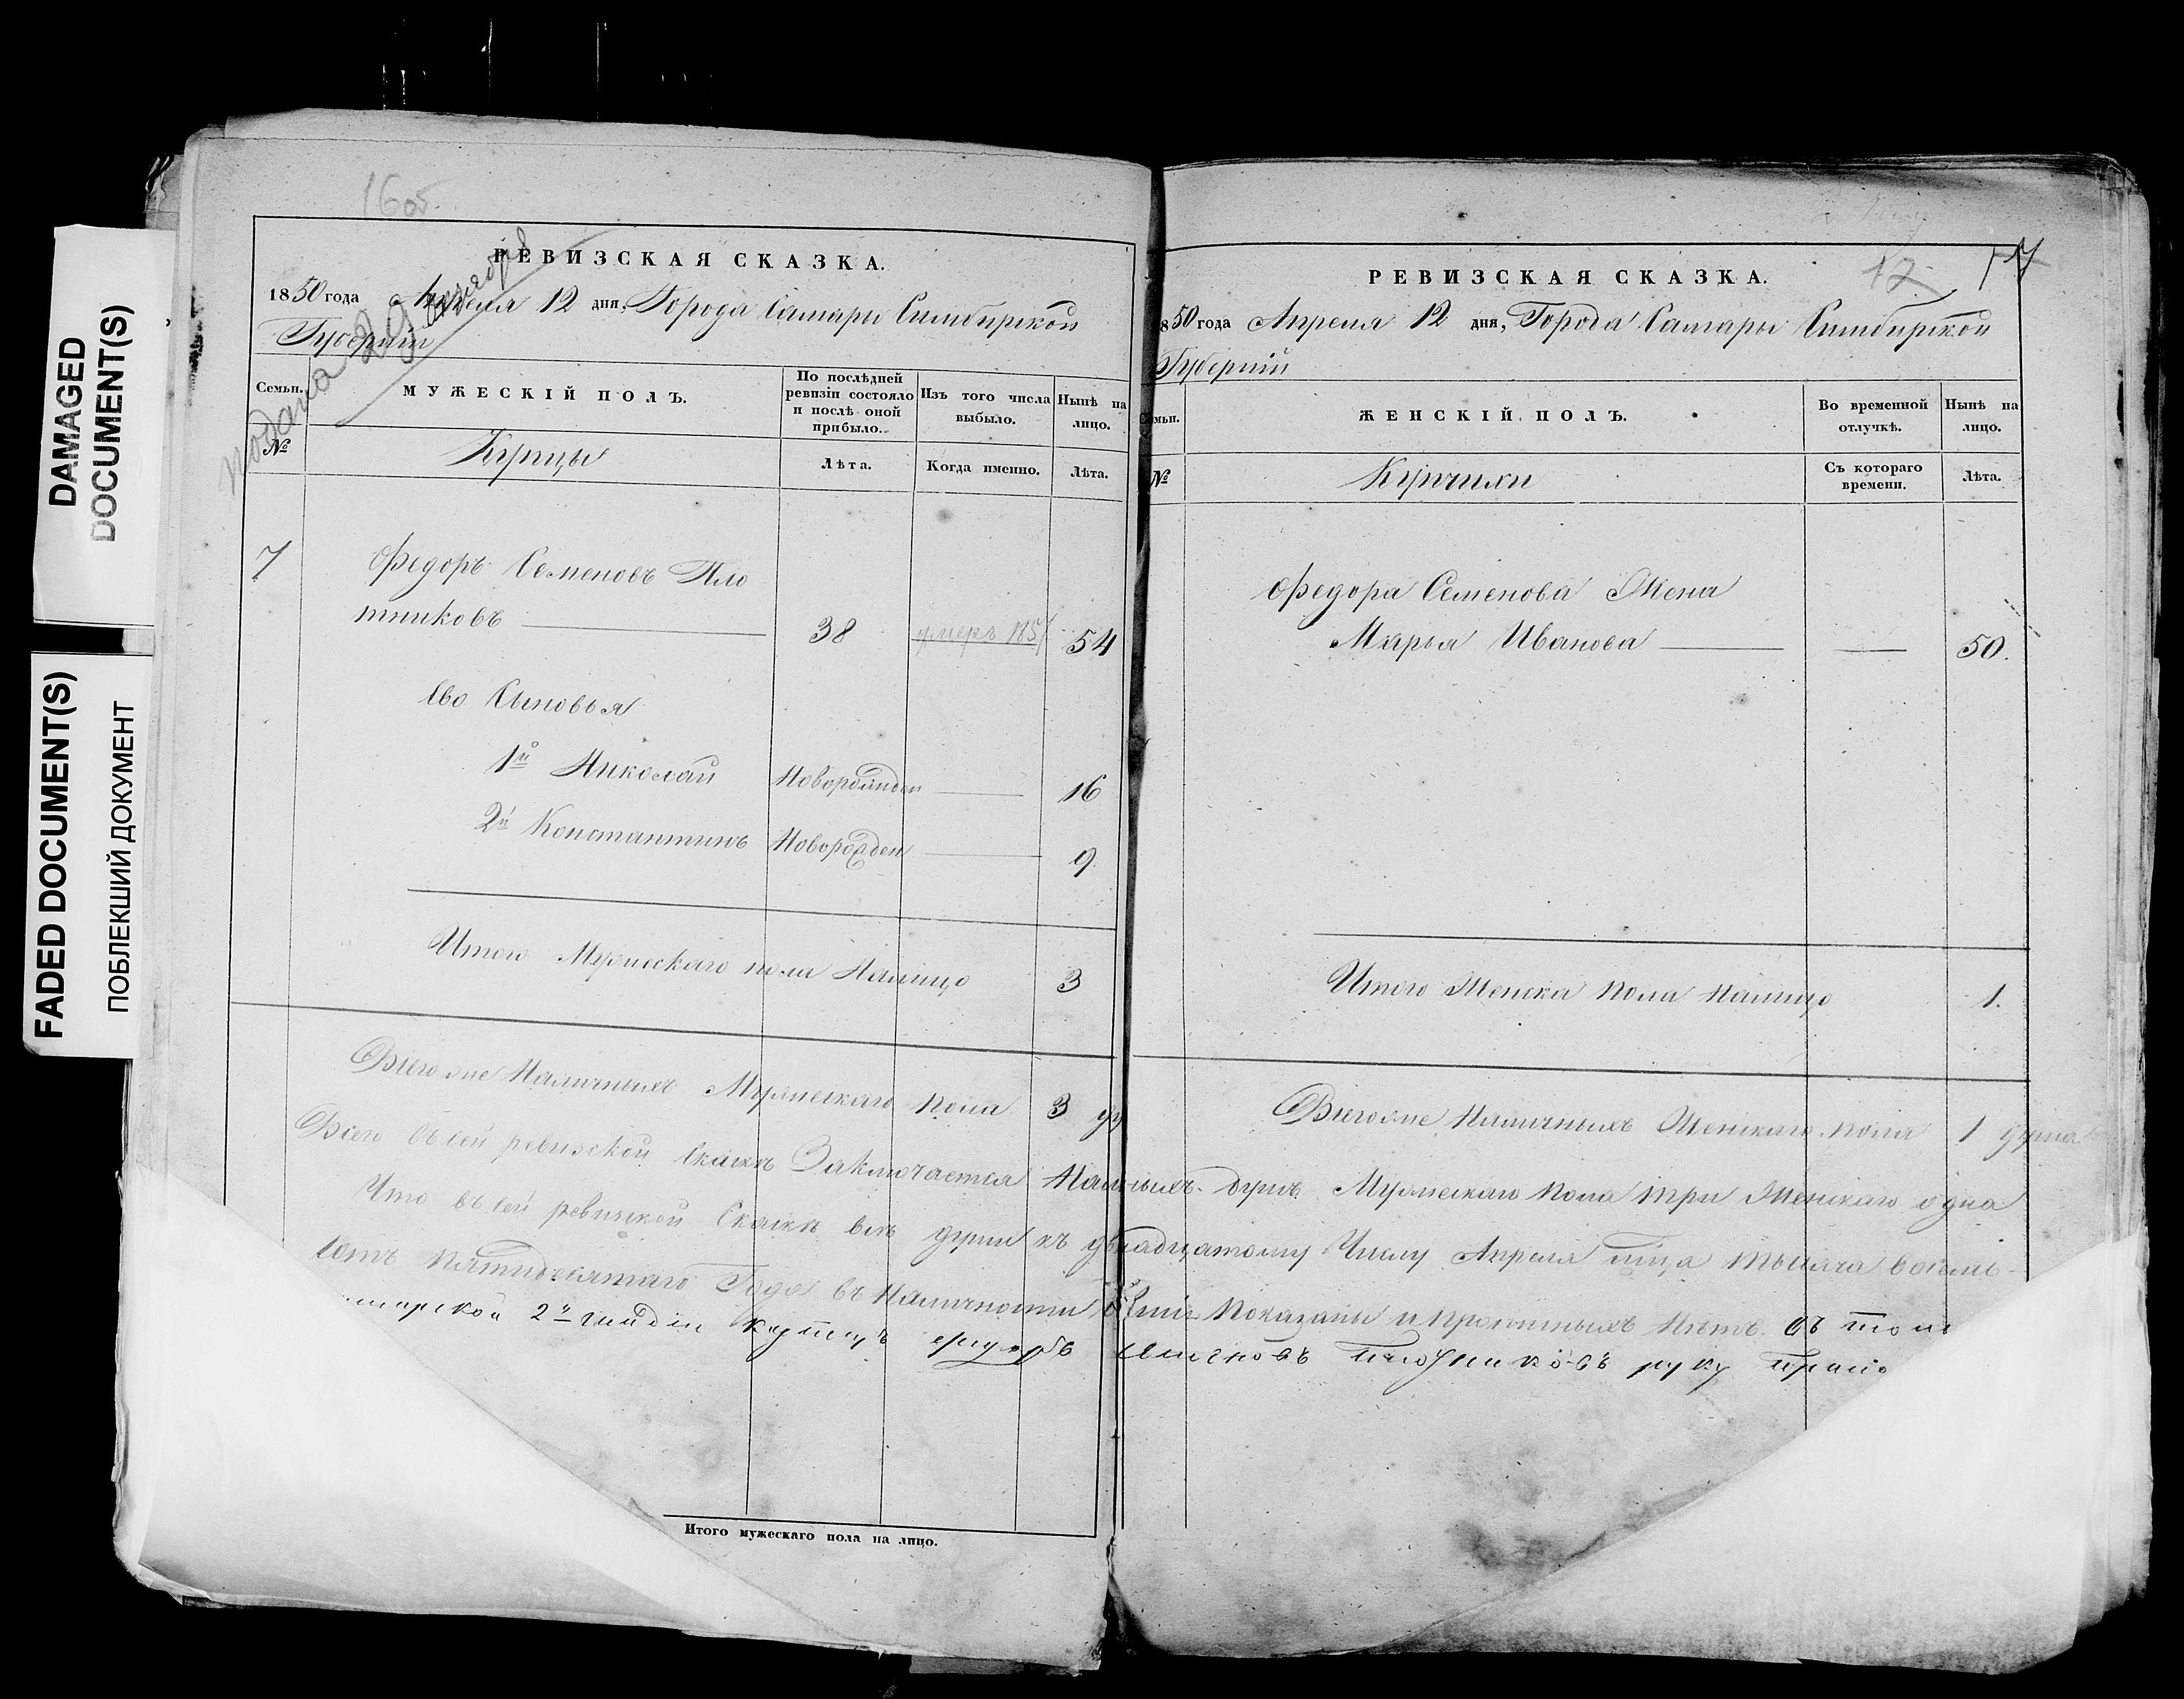 DAMAGED
DOCUMENT(S)
FADED DOCUMENT(S)
ПОБЛЕКШИЙ ДОКУМЕНТ
16об.
РЕВИЗСКАЯ СКАЗКА.
1850 года Апреля 12 дня, Города Самары Симбирской
Губернии
подана
Семьи. МУЖЕСКІЙ ПОЛЪ. По послѣдней ревизіи состояло и послѣ оной прибыло. Изъ того числа выбыло. Нынѣ на лицо.
№ Купцы Лѣта. Когда именно. Лѣта.
7 Федоръ Семеновъ Пло
тниковъ 38 умеръ 1851 54
Его Сыновья
1й Николай Новорожден 16
2й Константинъ Новорожден 9
Итого Мужескаго пола Налицо 3
Всего же Наличныхъ Мужескаго пола 3 ду
РЕВИЗСКАЯ СКАЗКА.
12 17
1850 года Апреля 12 дня, Города Самары Симбирской
Губернии
Семьи. ЖЕНСКІЙ ПОЛЪ. Во временной отлучкѣ. Нынѣ на лицо.
№ Купчихи Съ котораго времени. Лѣта.
Федора Семенова Жена
Марья Иванова 50.
Итого Женска пола Налицо 1.
Всего же Наличныхъ Женскаго пола 1 душа
Всего въ сей ревизской Сказкѣ Заключается Наличныхъ душъ Мужескаго пола три Женскаго одна
Что въ сей ревизской Сказкѣ всѣ души къ двенадцатому Числу Апреля мца тысяча восемь
сотъ пятидесятаго Года въ Наличности показаны и прописныхъ Нетъ. Въ том
марской 2й гилдіи купецъ федоръ Семеновъ Плотниковъ руку прило
Итого мужескаго пола на лицо.